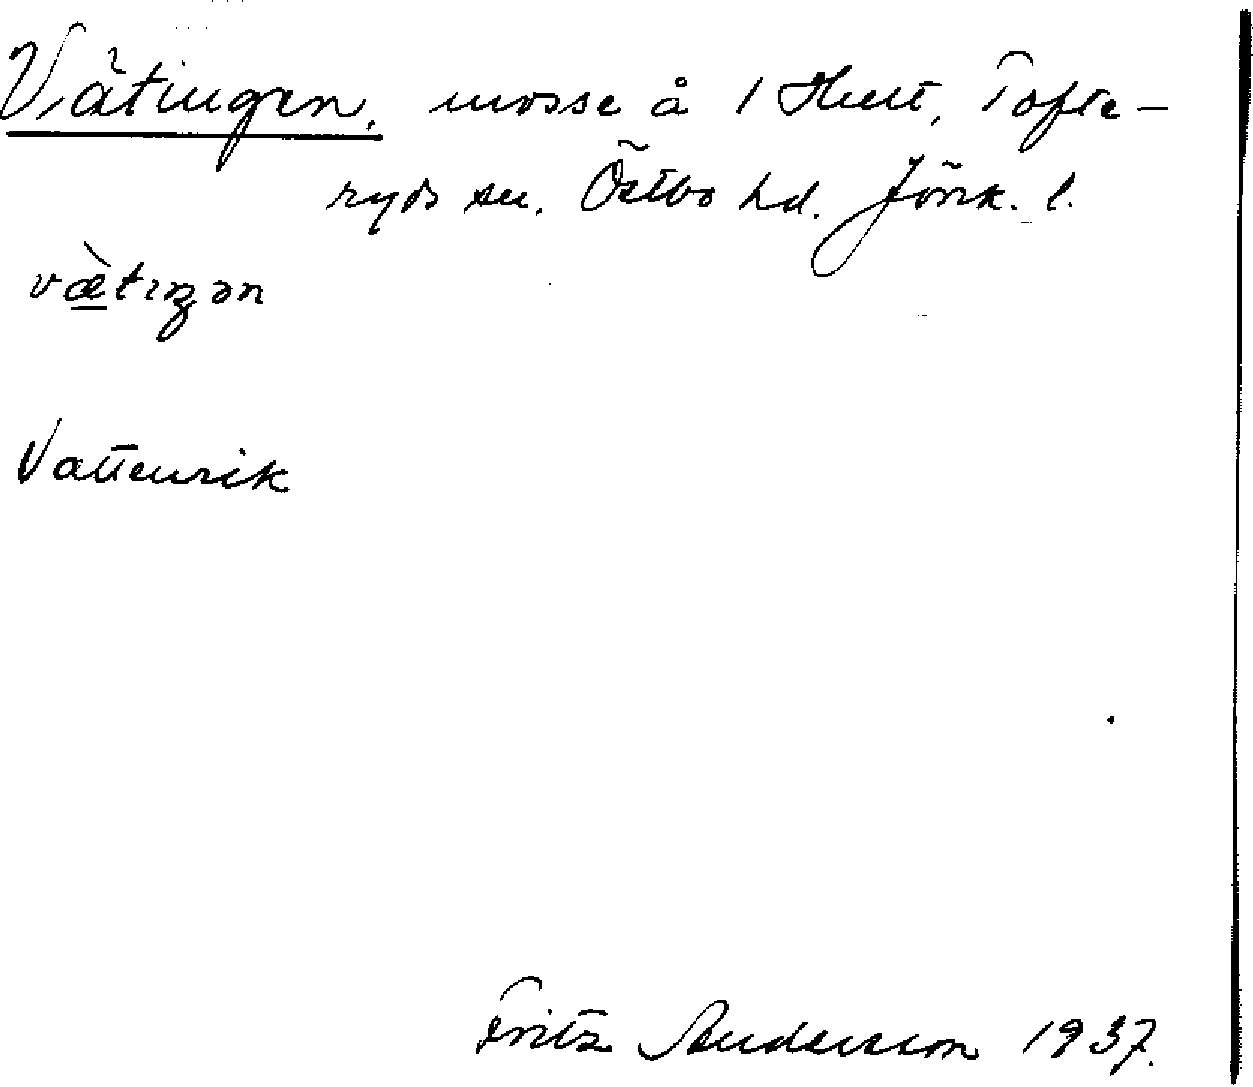 Vätingen, mosse å 1 Hult, Tofte-
ryds sn. Östbo hd. Jönk. l.
væ̀tıŋən
Vattenrik
Fritz Andersson 1937.